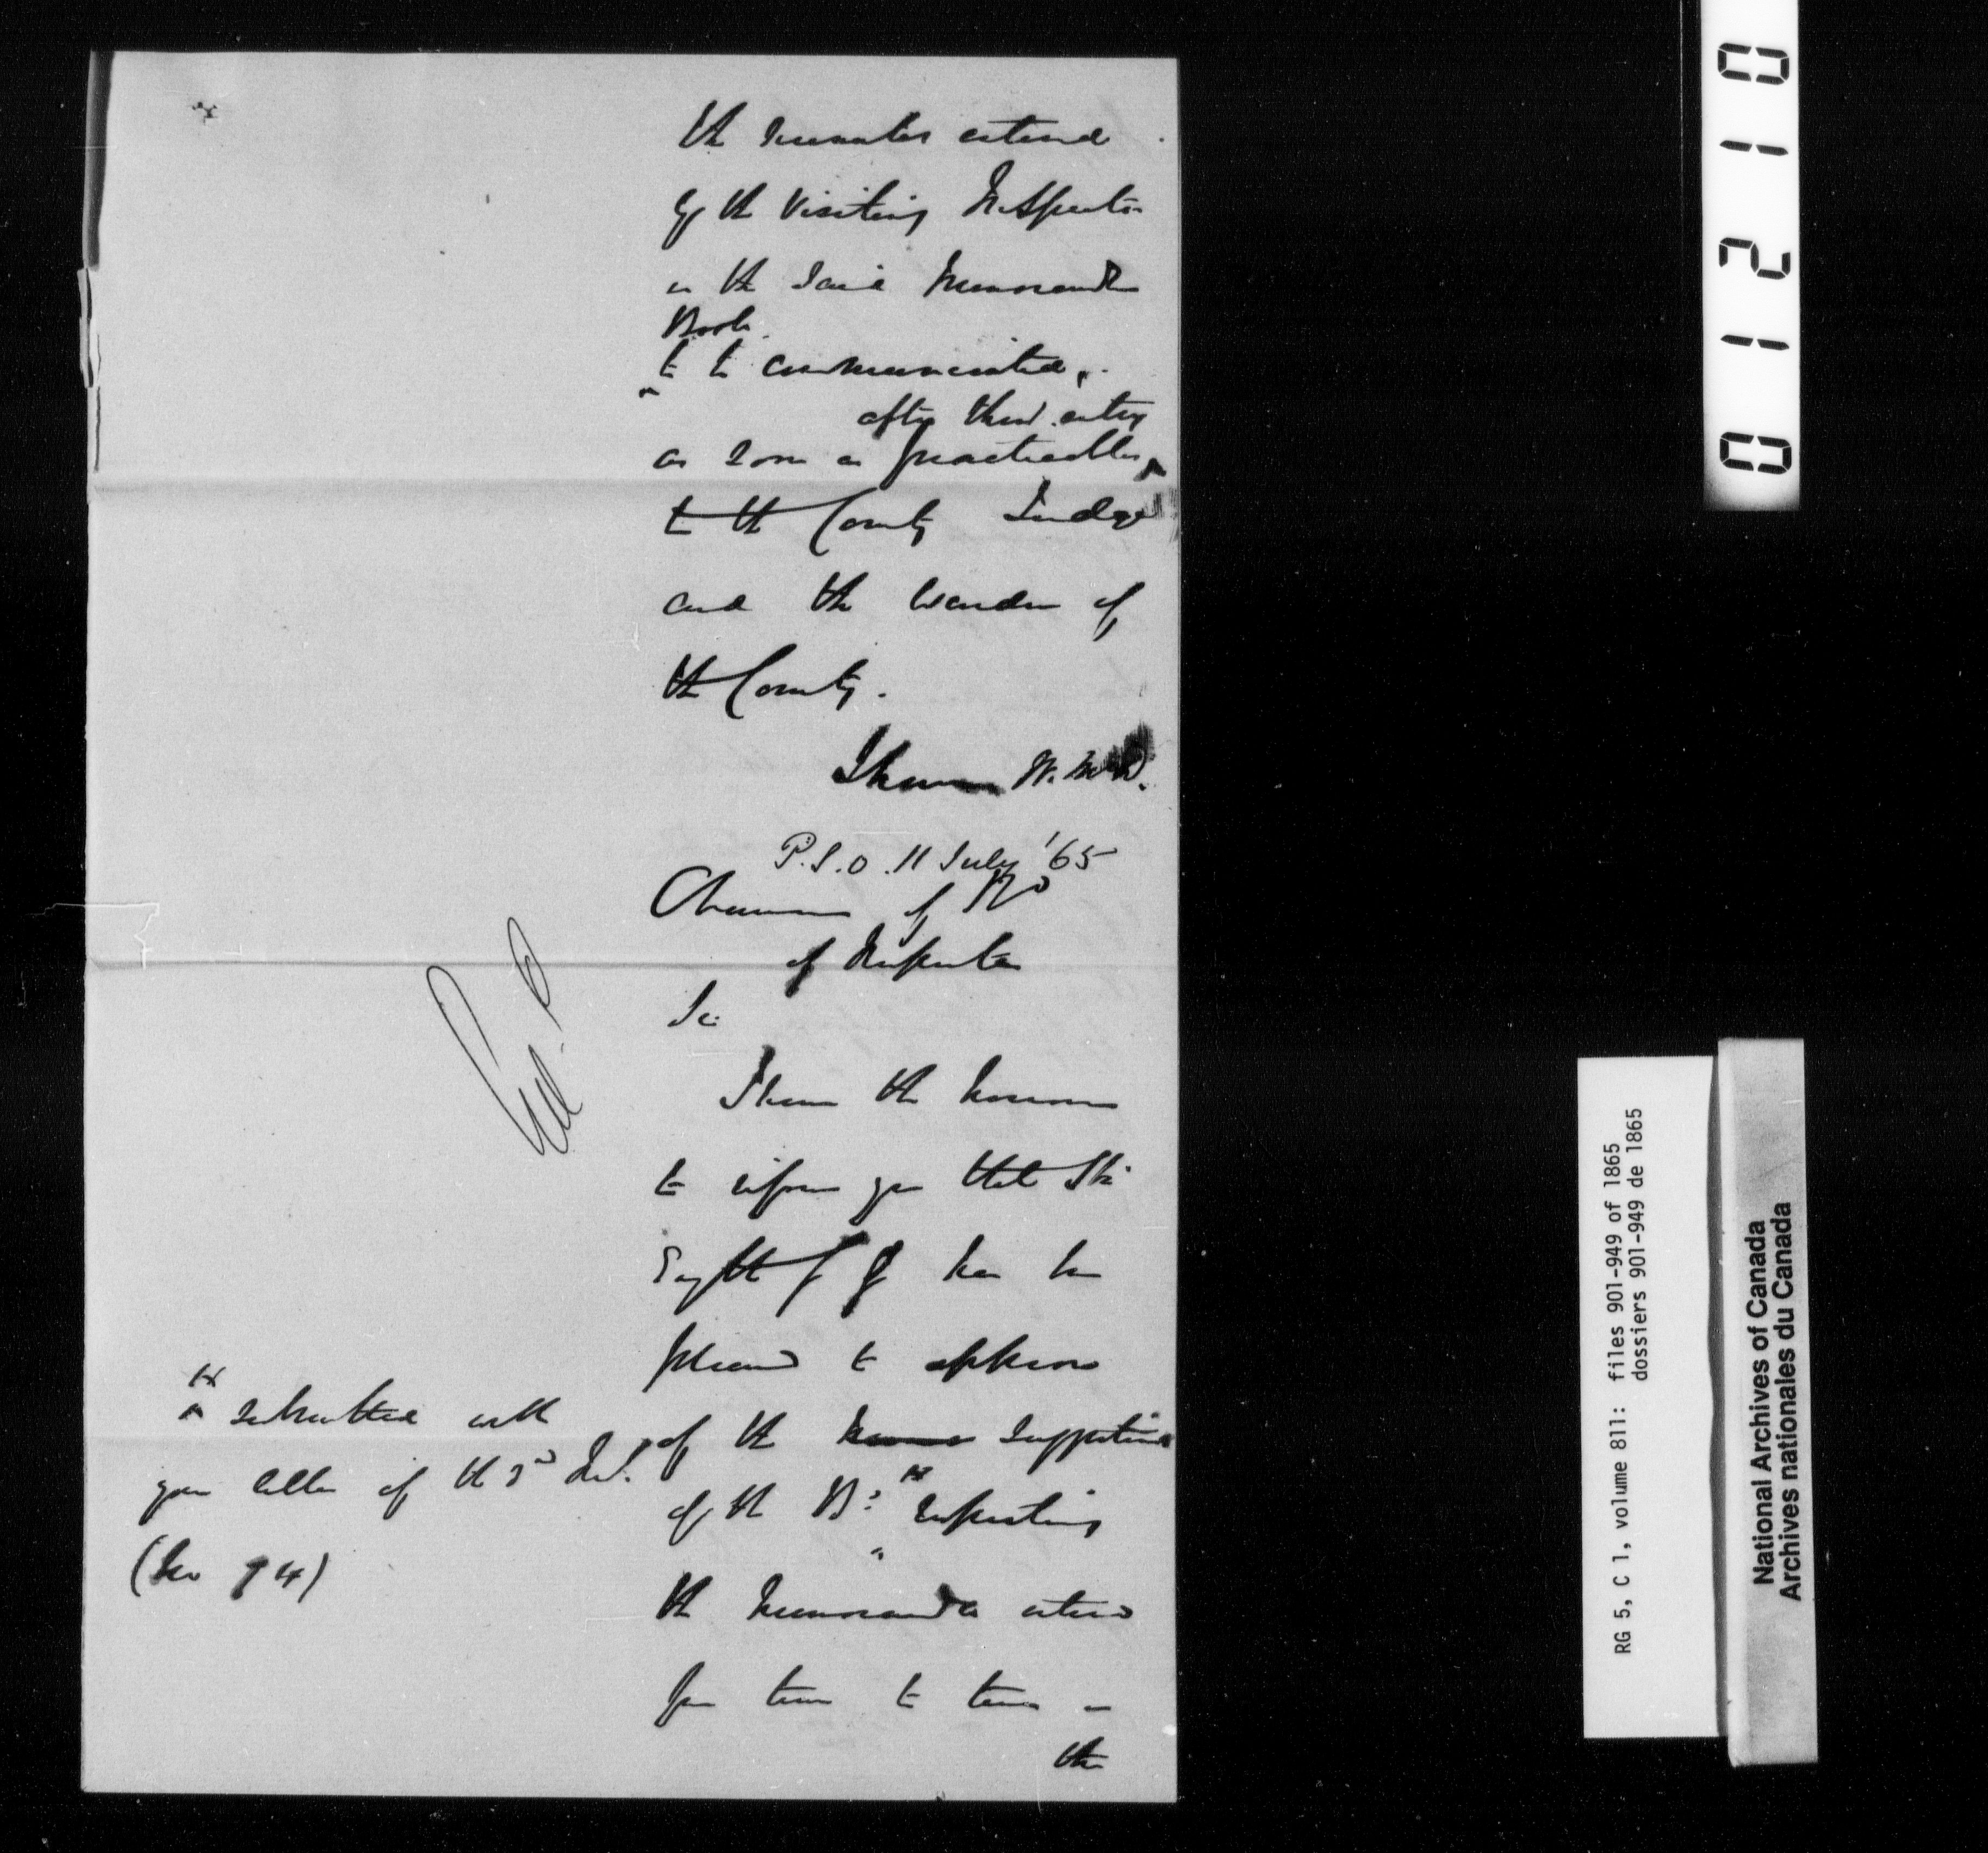 the remarks entered
by the Visiting Inspector
in the said Memoranda
Book
to be communicated,
after their entry
as soon as practicable
to the County Judge
and the Warden of
the County.
I have W. McD.
P.S.O. 11 July '65
Chairman of Bd
of Inspectors
Sir
I have the honour
to inform you that His
Excy the G G has been
pleased to approve
of the suggestion
of the Bd respecting
the Memoranda entered
from time to time in
the
x submitted with
your letter of the 3d Inst.
(No 94)
01210
RG 5, C 1, volume 811: files 901-949 of 1865
dossiers 901-949 de 1865
National Archives of Canada
Archives nationales du Canada